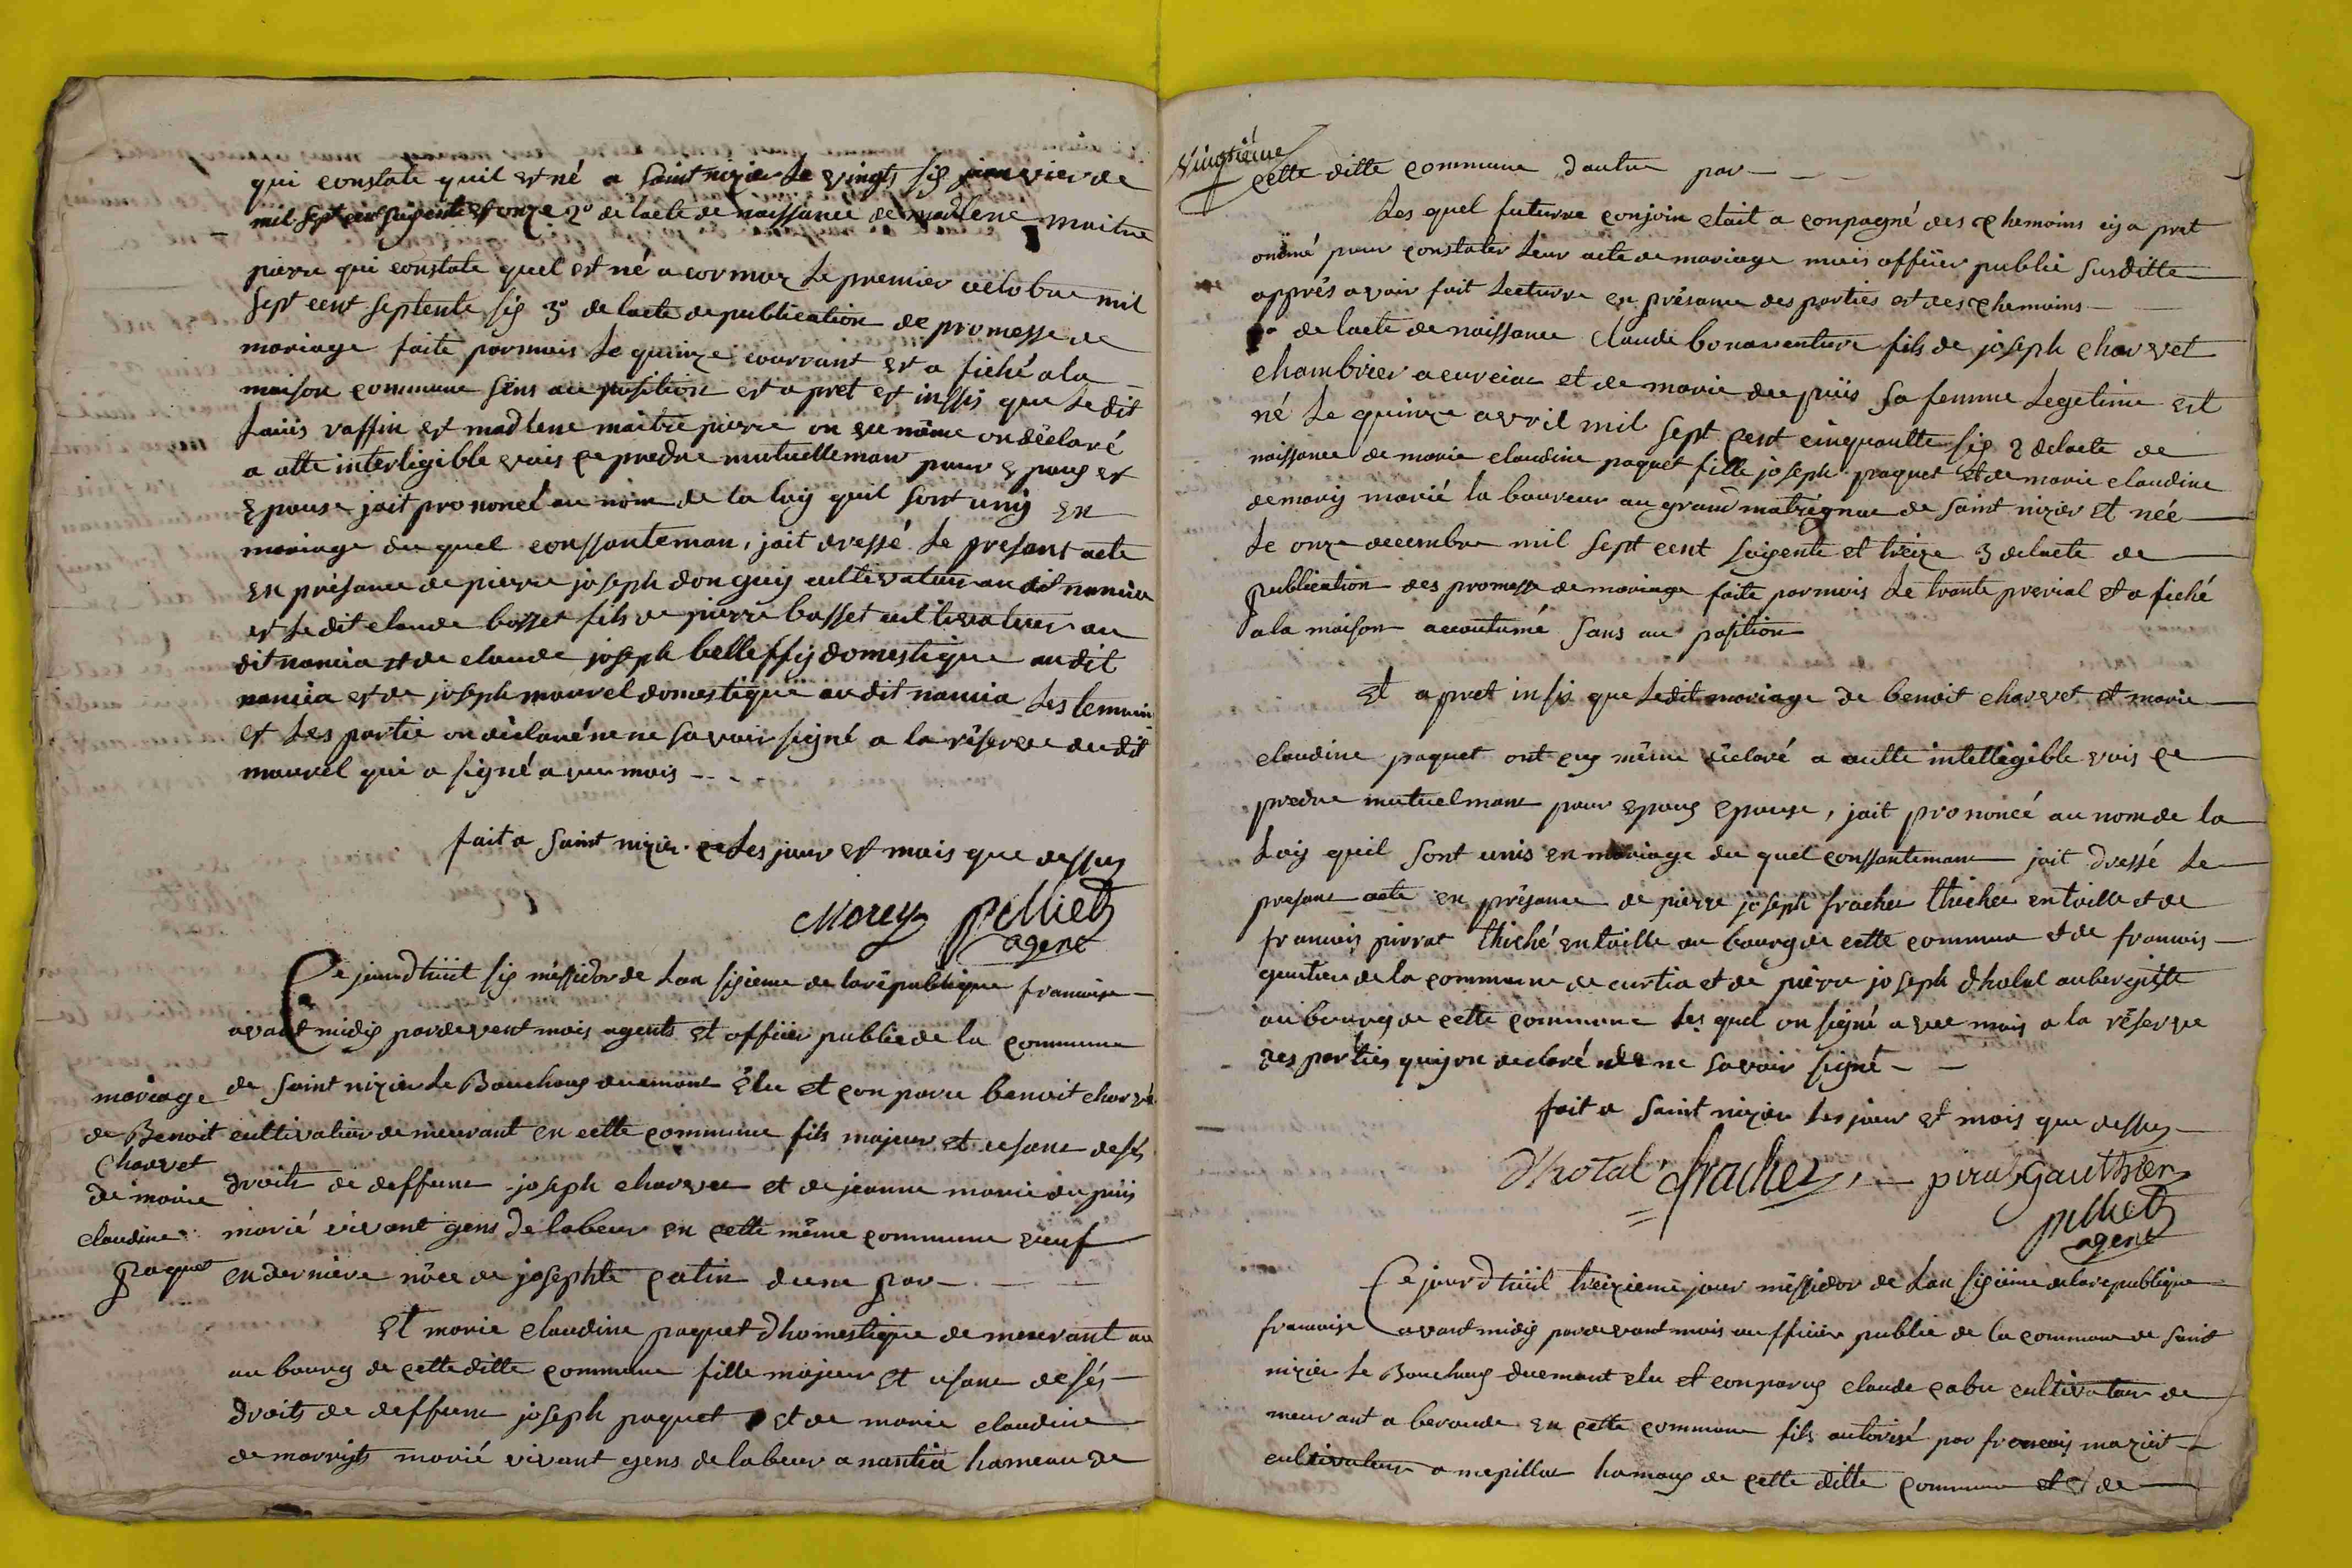 qui constate quil est né a saint nizier Le vingts six janvier de
mil sept cent soixente et onze 2° de lacte de naissance de madlene maitre
pierre qui constate quel est né a cormoz Le premier octobre mil
sept cent septente six 3° de lacte de publication de promesse de
mariage faite par mois Le quinze courrant et a fiché a la
maison commune sens au position et a pret et inssis que Le dit
Louis raffin et madlene maitre pierre on eu même on déclaré
a atte interligible vois ce predre mutuelleman pour epoux et
Epouse jait prononcé au nom de la loy quil sont uny En
mariage du quel conssanteman, jait dressé Le presant acte
En présance de pierre joseph donguy cultivateur au dit nancia
et Le dit claude bosset fils de pierre bosset cultivateur au
dit nancia et de claude joseph belleffy domestique au dit
nancia et de joseph mourel domestique au dit nancia Les temoin
et Les partie on déclaré ne ne savoir signé a la réserve du dit
mourel qui a signé avec mois - - -
fait a saint nizier ce Les jour et mois que dessus
Morey pelliet
agent
Ce jourdhuit six messidor de Lan sixieme de la république francaise
avant midy pardevent mois agents et officier public de la commune
de saint nizier Le Bouchoux duemant Elu et conparu benoit charvet
cultivateur de meurant en cette commune fils majeur et usant de sés
droits de deffunt joseph charvet et de jeanne marie du puis
marié vivant gens de labeur en cette même commune veuf
en derniere nôce de josephte catin dune par - - -
mariage
de Benoit
Charvet
de marie
claudine
paquet
Et marie claudine paquet dhomestique de meurant au
au bourg de cette ditte commune fille majeur et usant de sés
droits de deffunt joseph paquet et de marie claudine
de marrigts marié vivant gens de labeur a nantia hameau de
vingtième
cette ditte commune dautre par - - -
Les quel futurre conjoin etait a conpagné des themoins cy a pret
onômé pour constater Leur acte de mariage mois offiier public susditte
apprés avoir fait Lecturre en présance des parties et des themoins -
1° de lacte de naissance Claude bonaventure fils de joseph charvet
chambrier a curcia et de marie du puis sa femme Legetime est
né Le quinze avril mil sept cent cinquantte six 2 de lacte de
naissance de marie claudine paquet fille joseph paquet et de marie claudine
de marig marié la boureur au grand matrignac de saint nizier et née
Le onze decembre mil sept cent soixente et treize 3 de lacte de
publication des promesse de mariage faite par mois Le trante prerial et a fiché
a la maison accoutumé sans au position
Et a pret insis que Le dit mariage de benoit charvet et marie
claudine paquet ont euy même déclaré a autte intelligible vois ce
predre mutuelmant pour epoux epouse, jait prononcé au nom de la
Loiy queil sont unis en mariage du quel conssantemant jait dressé Le
presant acte en présance de pierre joseph fracher thicher en toille et de
francois pirrat thiché en toille au bourg de cette commune et de francois
gautier de la commune de curtia et de pierre joseph dhotal aubergiste
au bourg de cette commune Les quel on signé avec mois a la réserve
des parties quiy on declaré de ne savoir signé - -
fait a saint nizier Les jour et mois que dessus
Dhotal fracher, pirat gauthier
pelliet
agent
Ce jourdhuit treizieme jour messidor de Lan sixieme de la republique
francaise avant midy pardevant mois aufficier public de la commune de saint
nizier Le Bouchoux duemant elu et conparuy claude cabu cultivateur de
meurant a beroude En cette commune fils autorisé par francois maziet
cultivateur a mepillat hamaux de cette ditte commune et de